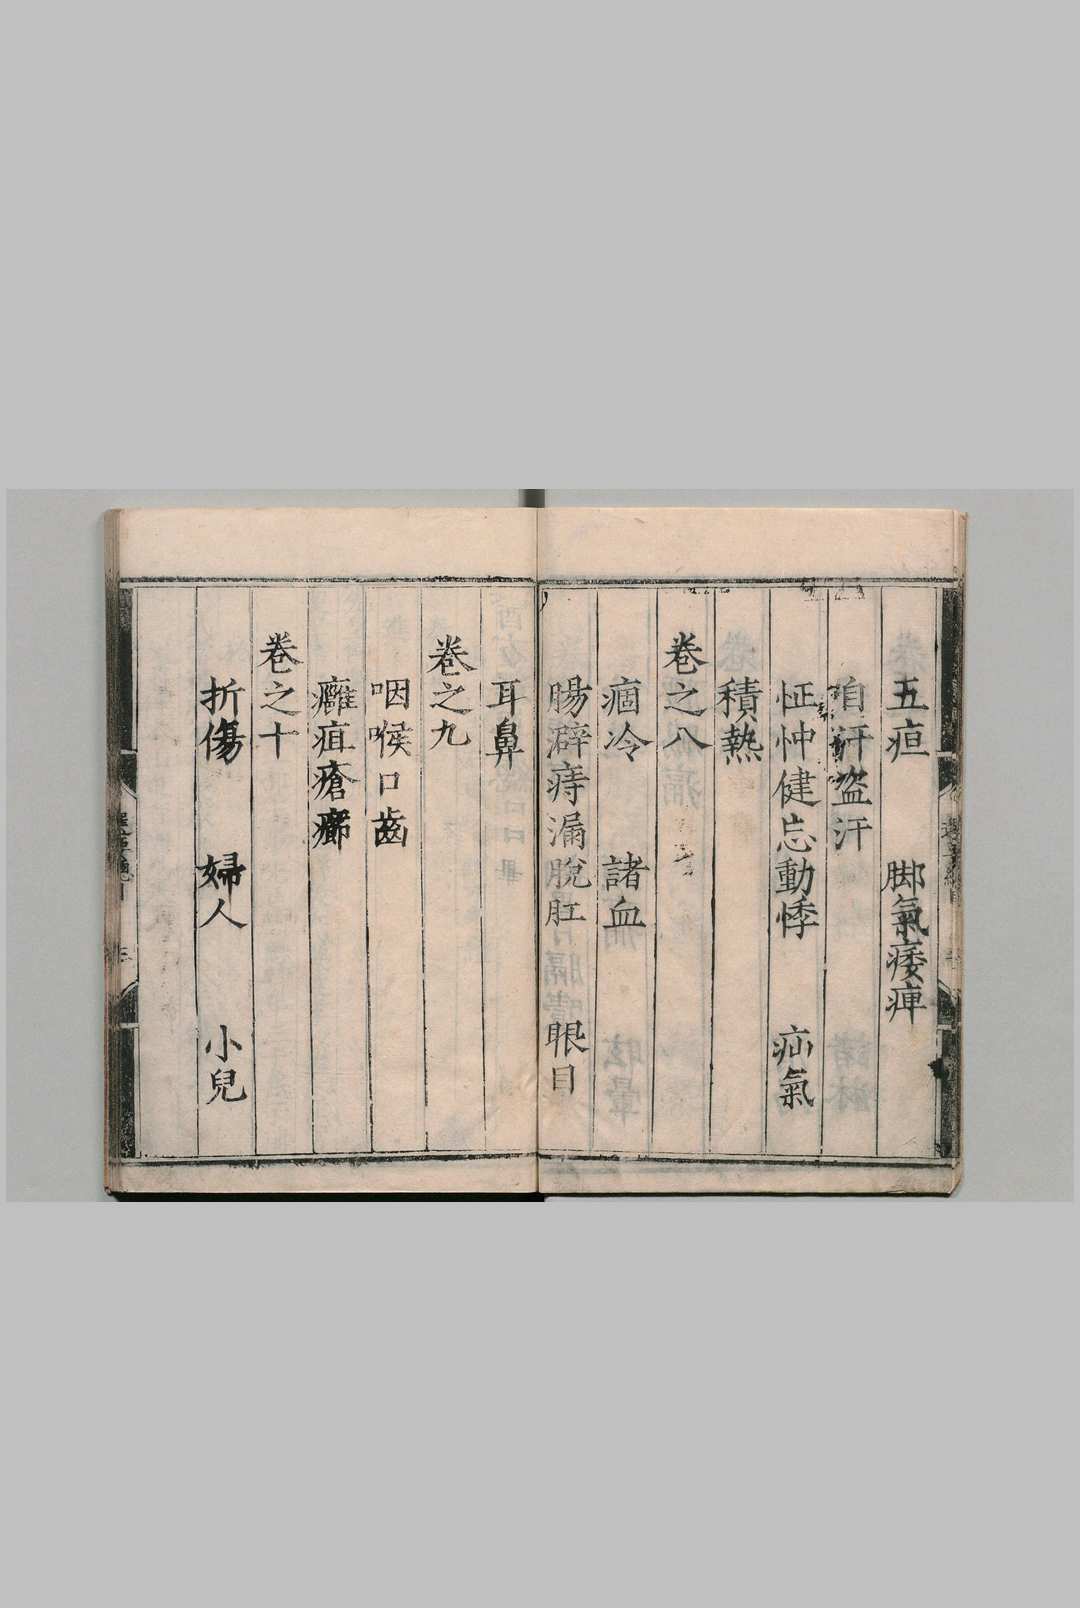 五疸 脚氣痿痺
自汗盗汗
怔忡健忘動悸 疝氣
積熱
卷之八
痼冷 諸血
腸澼痔漏脫肛 眼目
耳鼻
卷之九
咽喉口齒
癰疽瘡癤
卷之十
折傷 婦人 小兒